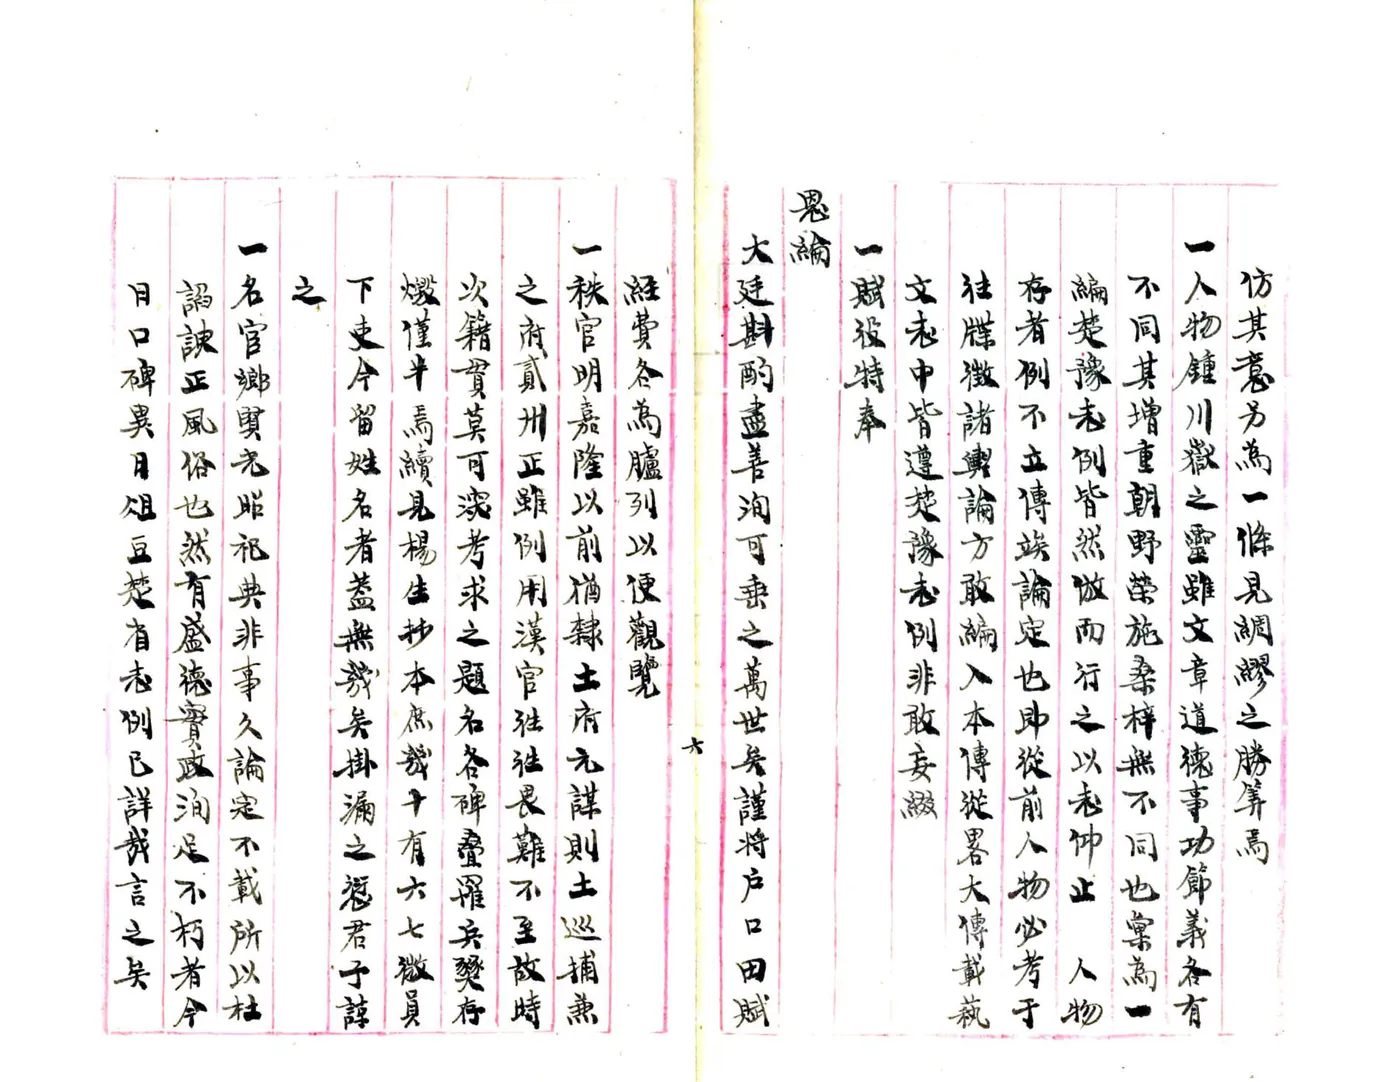 仿其意另為一條見綢繆之勝筭焉
一人物鍾川嶽之靈雖文章道德事功節義各有
不同其增重朝野榮施桑梓無不同也彙為一
編楚豫志例皆然倣而行之以志仰止 人物
存者例不立傳竢論定也即從前人物必考于
往牒徵諸輿論方敢編入本傳從畧大傳載藝
文志中皆遵楚豫志例非敢妄綴
一賦役特奉
恩綸
大廷斟酌盡善洵可垂之萬世矣謹將户口田賦
六
經費各為臚列以便觀覽
一秩官明嘉隆以前猶隸土府元謀則土巡捕兼
之府貳州正雖例用漢官往往畏難不至故時
次籍貫莫可深考求之題名各碑叠罹兵燹存
燬僅半焉續見楊生抄本庶幾十有六七微員
下吏今留姓名者蓋無幾矣掛漏之愆君子諒
之
一名宦鄉賢光昭祀典非事久論定不載所以杜
謟諛正風俗也然有盛德實政洵足不朽者今
日口碑異日俎豆楚省志例已詳哉言之矣